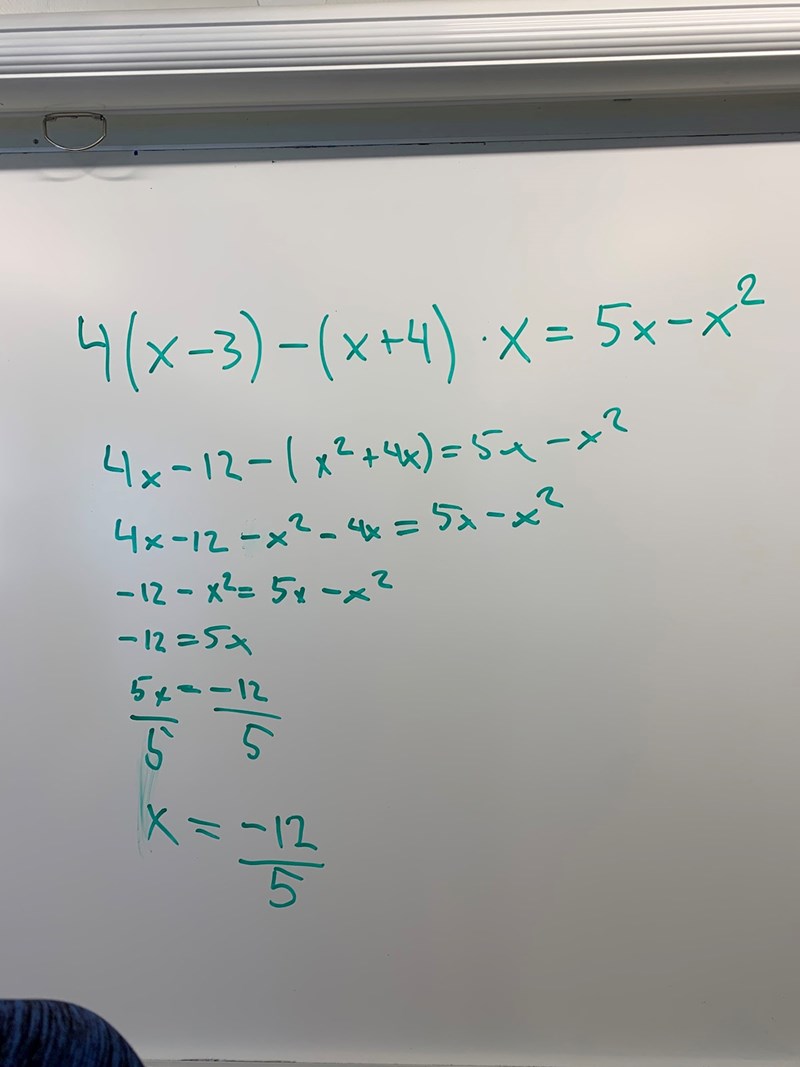 4(x-3)-(x+4)·x=5x-x²
4x-12-(x²+4x)=5x-x²
4x-12-x²-4x=5x-x²
-12-x²=5x-x²
-12=5x
5x/5=-12/5
x=-12/5